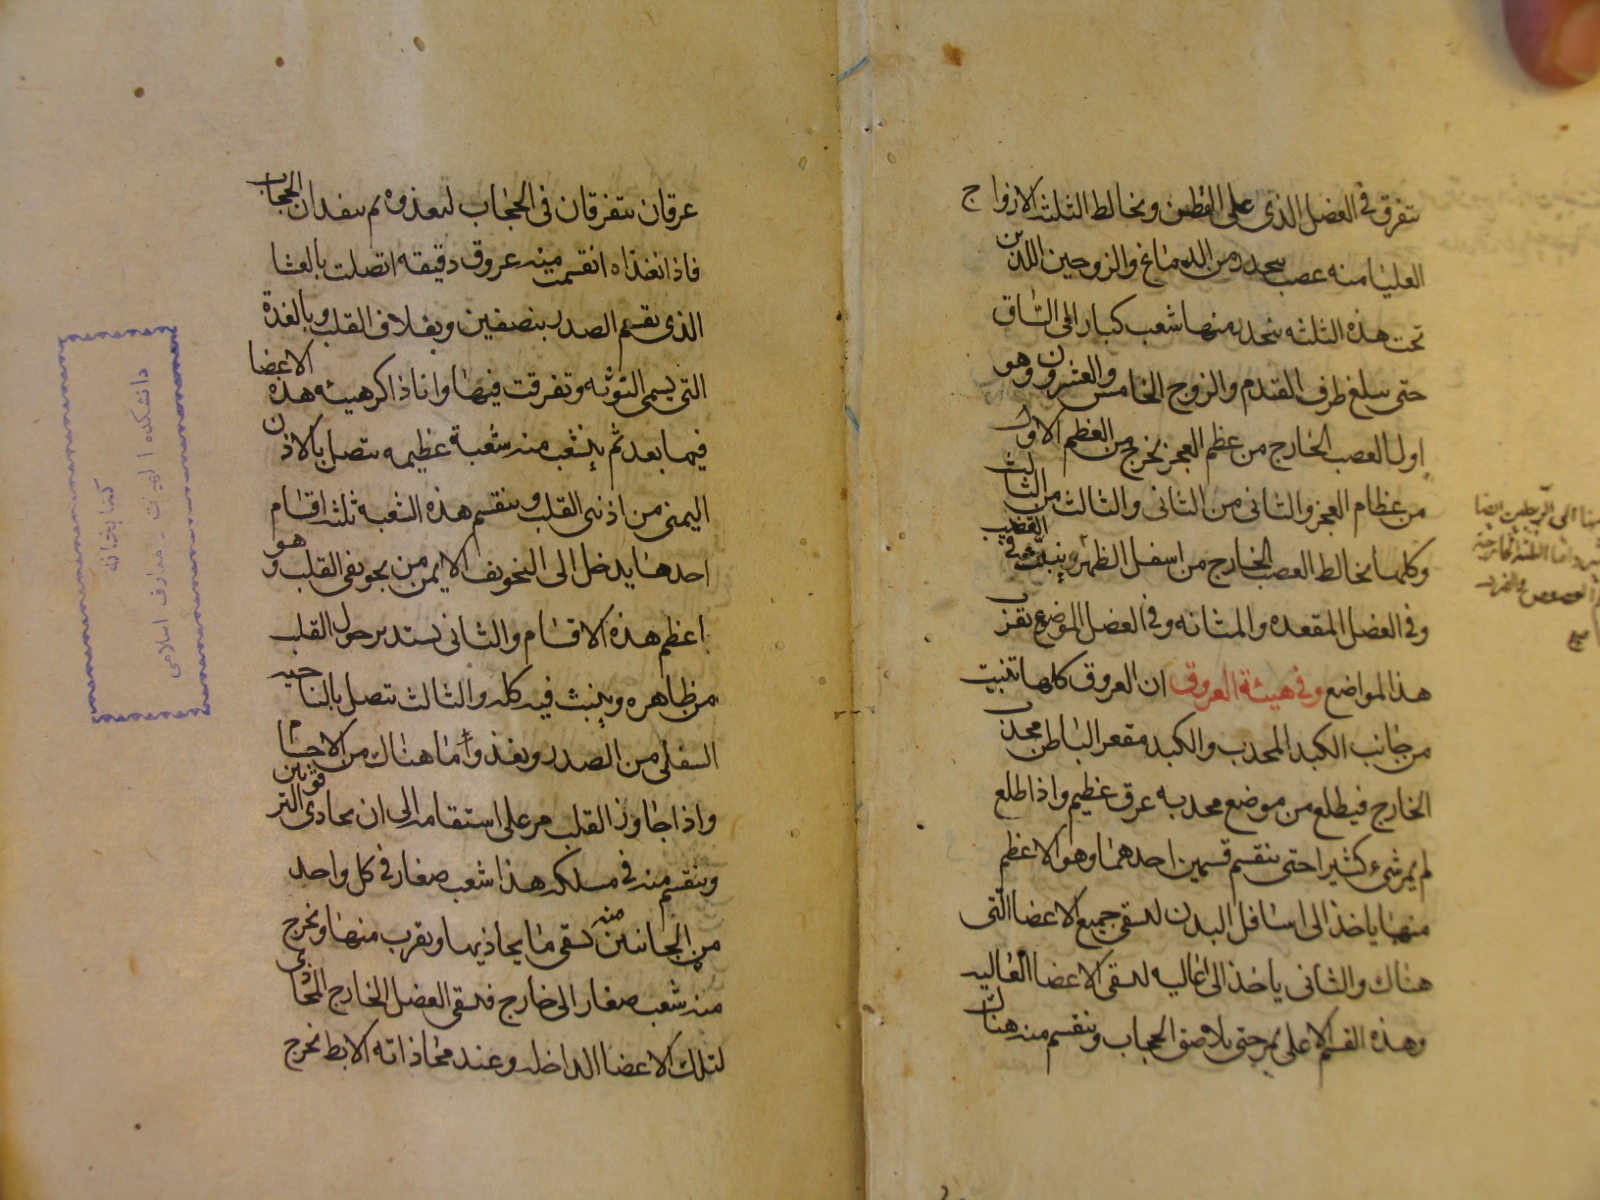 يتفرق في العضل الذي على القطن ويخالط الثلث الازواج
العليا منه عصب ينحدر من الدماغ والزوجين اللذين
تحت هذه الثلثه ينحدر منها شعب كبار الى الساق
حتى يبلغ طرف القدم والزوج الخامس والعشرون وهو
اول العصب الخارج من عظم العجز يخرج من العظم الاول
من عظام العجز والثاني من الثاني والثالث من الثالث
وكلها يخالط العصب الخارج من اسفل الظهر وينبث في القضيب
وفي العضل المقعده والمثانه وفي العضل الموضوع بقرب
هذا المواضع وفي هيئة العروق ان العروق كلها تنبت
من جانب الكبد المحدب والكبد مقعر الباطن محدب
الخارج فيطلع من موضع محدبه عرق عظيم واذا طلع
لم يمر شيء كثيرا حتى ينقسم قسمين احدهما وهو الاعظم
منها ياخذ الى اسافل البدن لسقى جميع الاعضا التى
هناك والثاني ياخذ الى اعاليه لسقى الاعضا العاليه
وهذه القسم الاعلى يمر حتى يلاصق الحجاب وينقسم منه هناك
منها الى الرجلين ايضا
عرقان يتفرقان في الحجاب ليغذوه ثم ينفذان الحجاب
فاذا نفذاه انقسمت منه عروق دقيقه اتصلت بالغشا
الذي يقسم الصدر بنصفين وبغلاف القلب وبالغدة
التى يسمى التوثه وتفرقت فيها وانا ذاكر هيئه هذه الاعضا
فيما بعد ثم ينشعب منه شعبة عظيمه تتصل بالاذن
اليمنى من اذنى القلب وينقسم هذه الشعبه ثلثه اقسام
احدها يدخل الى التجويف الايمن من تجويفى القلب وهو
اعظم هذه الاقسام والثاني يستدير حول القلب
من ظاهره وينبث فيه كله والثالث تتصل بالناحيه
السفلى من الصدر ويغذوا ما هناك من الاجسام
واذا جاوز القلب مر على استقامه الى ان يحاذى الترقوتين
وينقسم منه في مسلكه هذا شعب صغار في كل واحد
من الجانبين منه تسقى ما يحاذيها ويقرب منها ويخرج
منه شعب صغار الى خارج فيسقى العضل الخارج المحاذى
لتلك الاعضا الداخله وعند محاذاته الابط يخرج
دانشكده الهيات و معارف اسلامى
كتابخانه